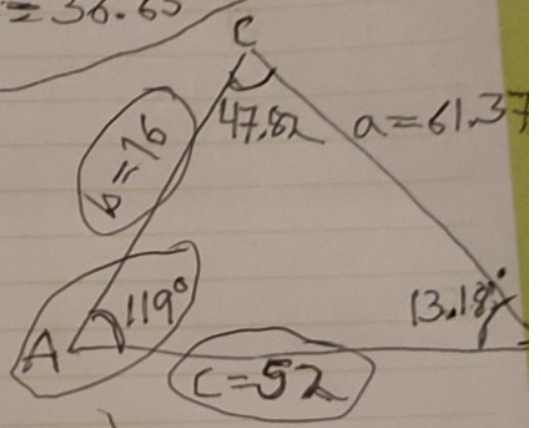 = 36.65
C
47.82
a=61.37
b=16
A
119°
13.18
c=52